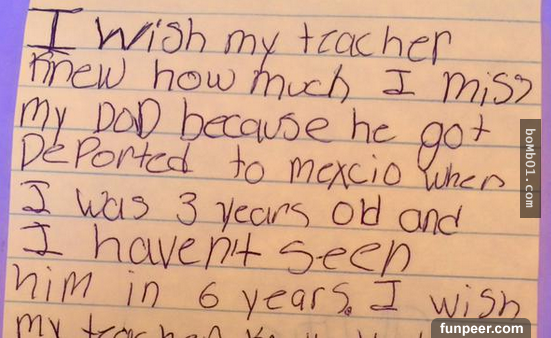 I wish my teacher
knew how much I miss
my DAD because he got
DePorted to mexcio when
I was 3 years old and
I haven't seen
him in 6 years. I wish
my teacher
bomb01.com
funpeer.com